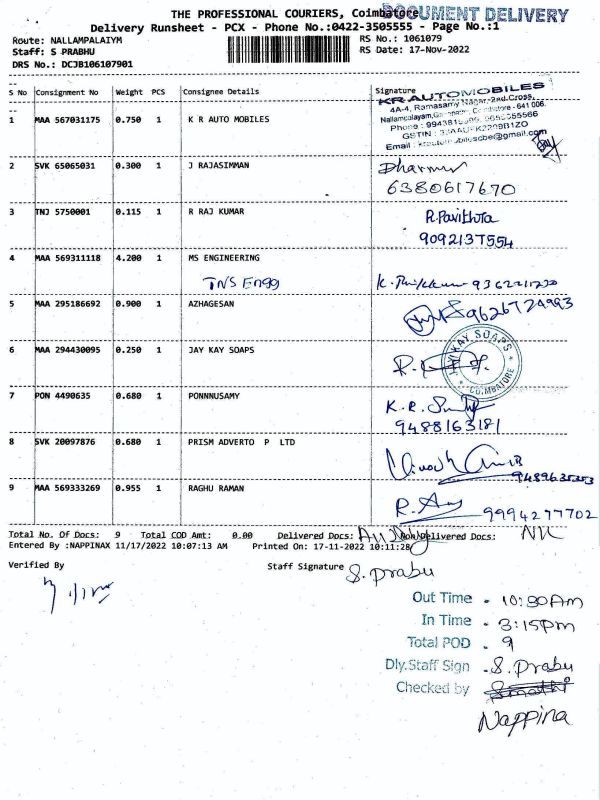 THE PROFESSIONAL COURIERS, Coimbatore
DOCUMENT DELIVERY
Delivery Runsheet - PCX - Phone No.:0422-3505555 - Page No.:1
Route: NALLAMPALAIYM
RS No.: 1061079
Staff: S PRABHU
RS Date: 17-Nov-2022
DRS No.: DCJB106107901
S No Consignment No Weight PCS Consignee Details Signature
1 MAA 567031175 0.750 1 K R AUTO MOBILES
KR AUTOMOBILES
4A-4, Ramasamy Nagar, 2nd Cross,
Nallampalayam, Coimbatore - 641 006.
2 SVK 65065031 0.300 1 J RAJASIMMAN
6380617670
3 TNJ 5750001 0.115 1 R RAJ KUMAR R.Pavithra
9092137554
4 MAA 569311118 4.200 1 MS ENGINEERING
TNS Engg
5 MAA 295186692 0.900 1 AZHAGESAN
9626724993
6 MAA 294430095 0.250 1 JAY KAY SOAPS
KAY SOAPS
COIMBATORE
7 PON 4490635 0.680 1 PONNNUSAMY K.R.
9488163181
8 SVK 20097876 0.680 1 PRISM ADVERTO P LTD
9489635353
9 MAA 569333269 0.955 1 RAGHU RAMAN
9994277702
Total No. Of Docs: 9 Total COD Amt: 0.00 Delivered Docs: Non Delivered Docs: Nil
Entered By :NAPPINAX 11/17/2022 10:07:13 AM Printed On: 17-11-2022 10:11:28
Verified By
Staff Signature S. prabu
Out Time - 10:30Am
In Time - 3:15pm
Total POD - 9
Dly.Staff Sign - S. Prabu
Checked by
Nappina